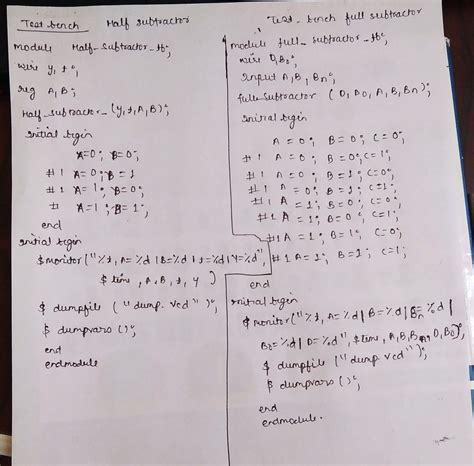 Test bench Half subtractor
module Half_subtractor_tb;
wire y, t;
reg A, B;
Half_subtractor_(y,t,A,B);
initial begin
A=0; B=0;
#1 A=0; B=1
#1 A=1; B=0;
#1 A=1; B=1;
end
initial begin
$monitor("%t, A=%d | B=%d | t=%d | Y=%d",
$time, A, B, t, y)
$ dumpfile ("dump.vcd");
$ dumpvars ();
end
endmodule
Test-bench full subtractor
module full_subtractor_tb;
wire D, Bo;
input A, B, Bn;
full_subtractor (D, Do, A, B, Bn);
initial begin
A=0; B=0; C=0;
#1 A=0; B=0; C=1;
#1 A=0; B=1; C=0;
#1 A=0; B=1; C=1;
#1 A=1; B=0; C=0;
#1 A=1; B=0; C=1;
#1 A=1; B=1; C=0;
#1 A=1; B=1; C=1;
end
initial begin
$monitor("%t, A=%d | B=%d | Bn=%d |
Bo=%d | D=%d", $time, A, B, Bn, D, Bo);
$ dumpfile ("dump.vcd");
$ dumpvars ();
end
endmodule.